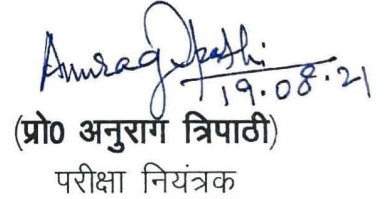 Anurag Tripathi
19.08.21
(प्रो0 अनुराग त्रिपाठी)
परीक्षा नियंत्रक